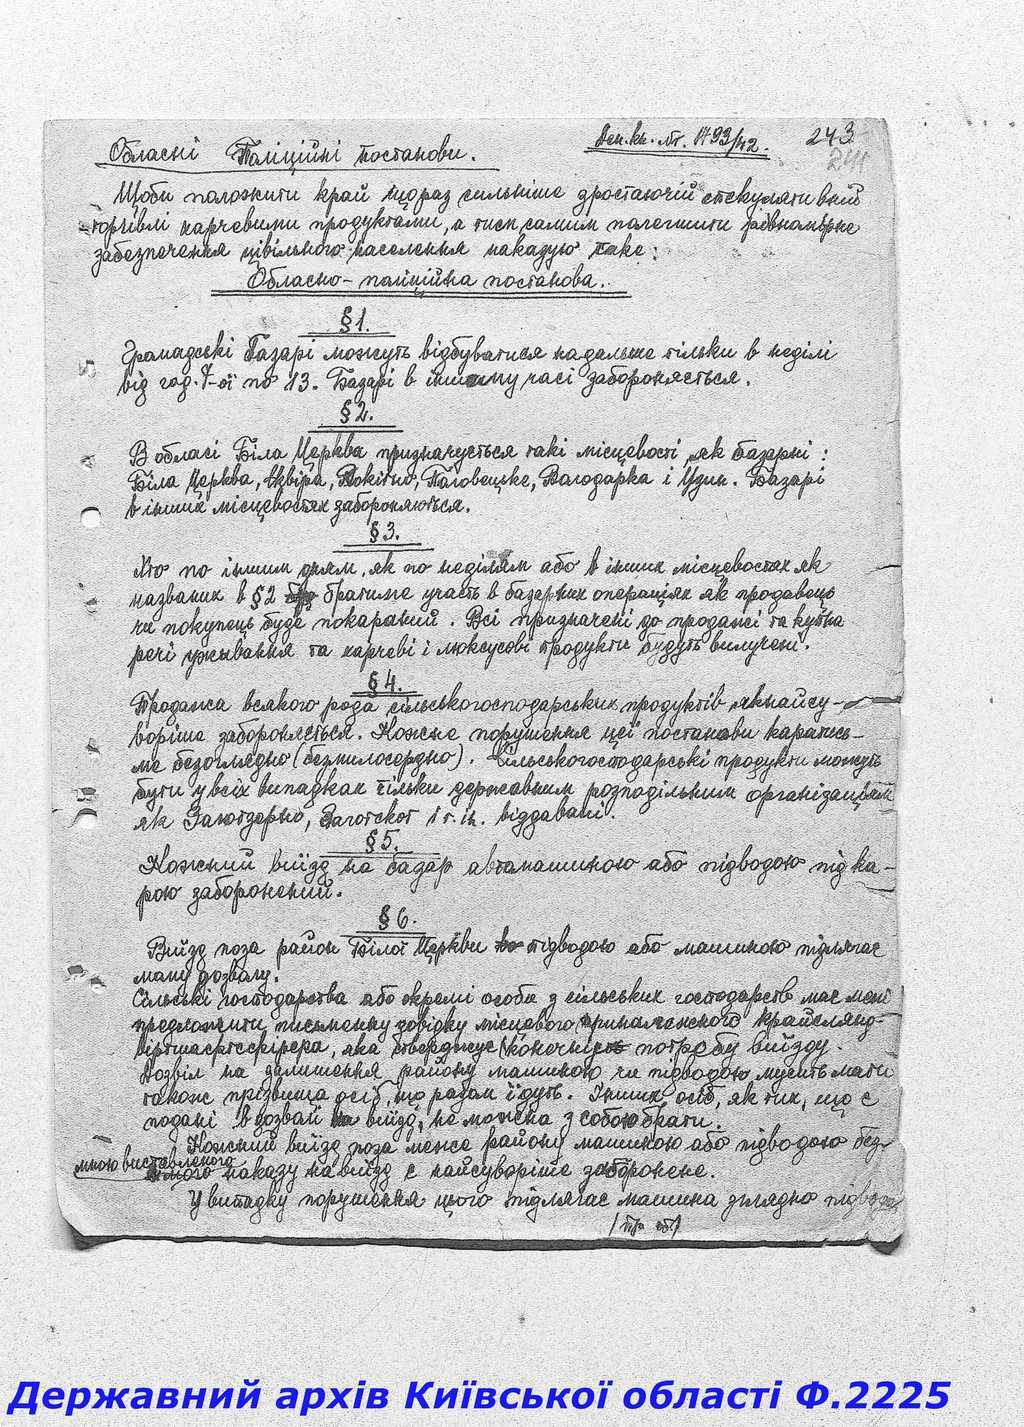 Ден.кн. №. 1793/42. 243
Обласні Поліційні постанови. 244
Щоби положити край щораз сильніше зростаючій спекулятивній
торгівлі харчевими продуктами, а тим самим полегшити рівномірне
забезпечення цівільного населення наказую таке:
Обласно-поліційна постанова.
§1.
Громадські базарі можуть відбуватися надальше тільки в неділі
від год. 7-ої по 13. Базарі в іншому часі забороняється.
§2.
В області Біла Церква призначується такі місцевості, як базарні:
Біла Церква, Сквіра, Рокітно, Таговецьке, Володарка і Узин. Базарі
в інших місцевостях забороняються.
§3.
Хто по іншим дням, як по неділям або в інших місцевостях як
названих в §2 братиме участь в базарних операціях як продавець
чи покупець буде покараний. Всі призначені до продажі та купна
речі уживання та харчеві і люксусові продукти будуть вилучені.
§4.
Продажа всякого рода сільськогосподарських продуктів якнайсу-
воріше забороняється. Кожне порушення цеї постанови каратись-
ме безоглядно (безмилосердно). Сільськогосподарські продукти можуть
бути у всіх випадках тільки державним розподільним організаціям
як Заготзерно, Заготскот і т. ін. віддавані.
§5.
Кожний виїзд на базар автомашиною або підводою під ка-
рою заборонений.
§6.
Виїзд поза район Білої Церкви підводою або машиною підлягає
мому дозволу.
Сільські господарства або окремі особи з сільських господарств має мені
предложити письменну довідку місцевого приналежного крайсляно-
віртшафтсфірера, яка стверджує конечність потребу виїзду.
Дозвіл на залишення району машиною чи підводою мусить мати
також прізвища осіб, що разом їдуть. Інших осіб, як тих, що є
подані в дозвалі на виїзд, не можна з собою брати.
Кожний виїзд поза межі району машиною або підводою без
мною виставленого наказу на виїзд є найсуворіше заборонене.
У випадку порушення цього підлягає машина зглядно підвода
Державний архів Київської області Ф.2225